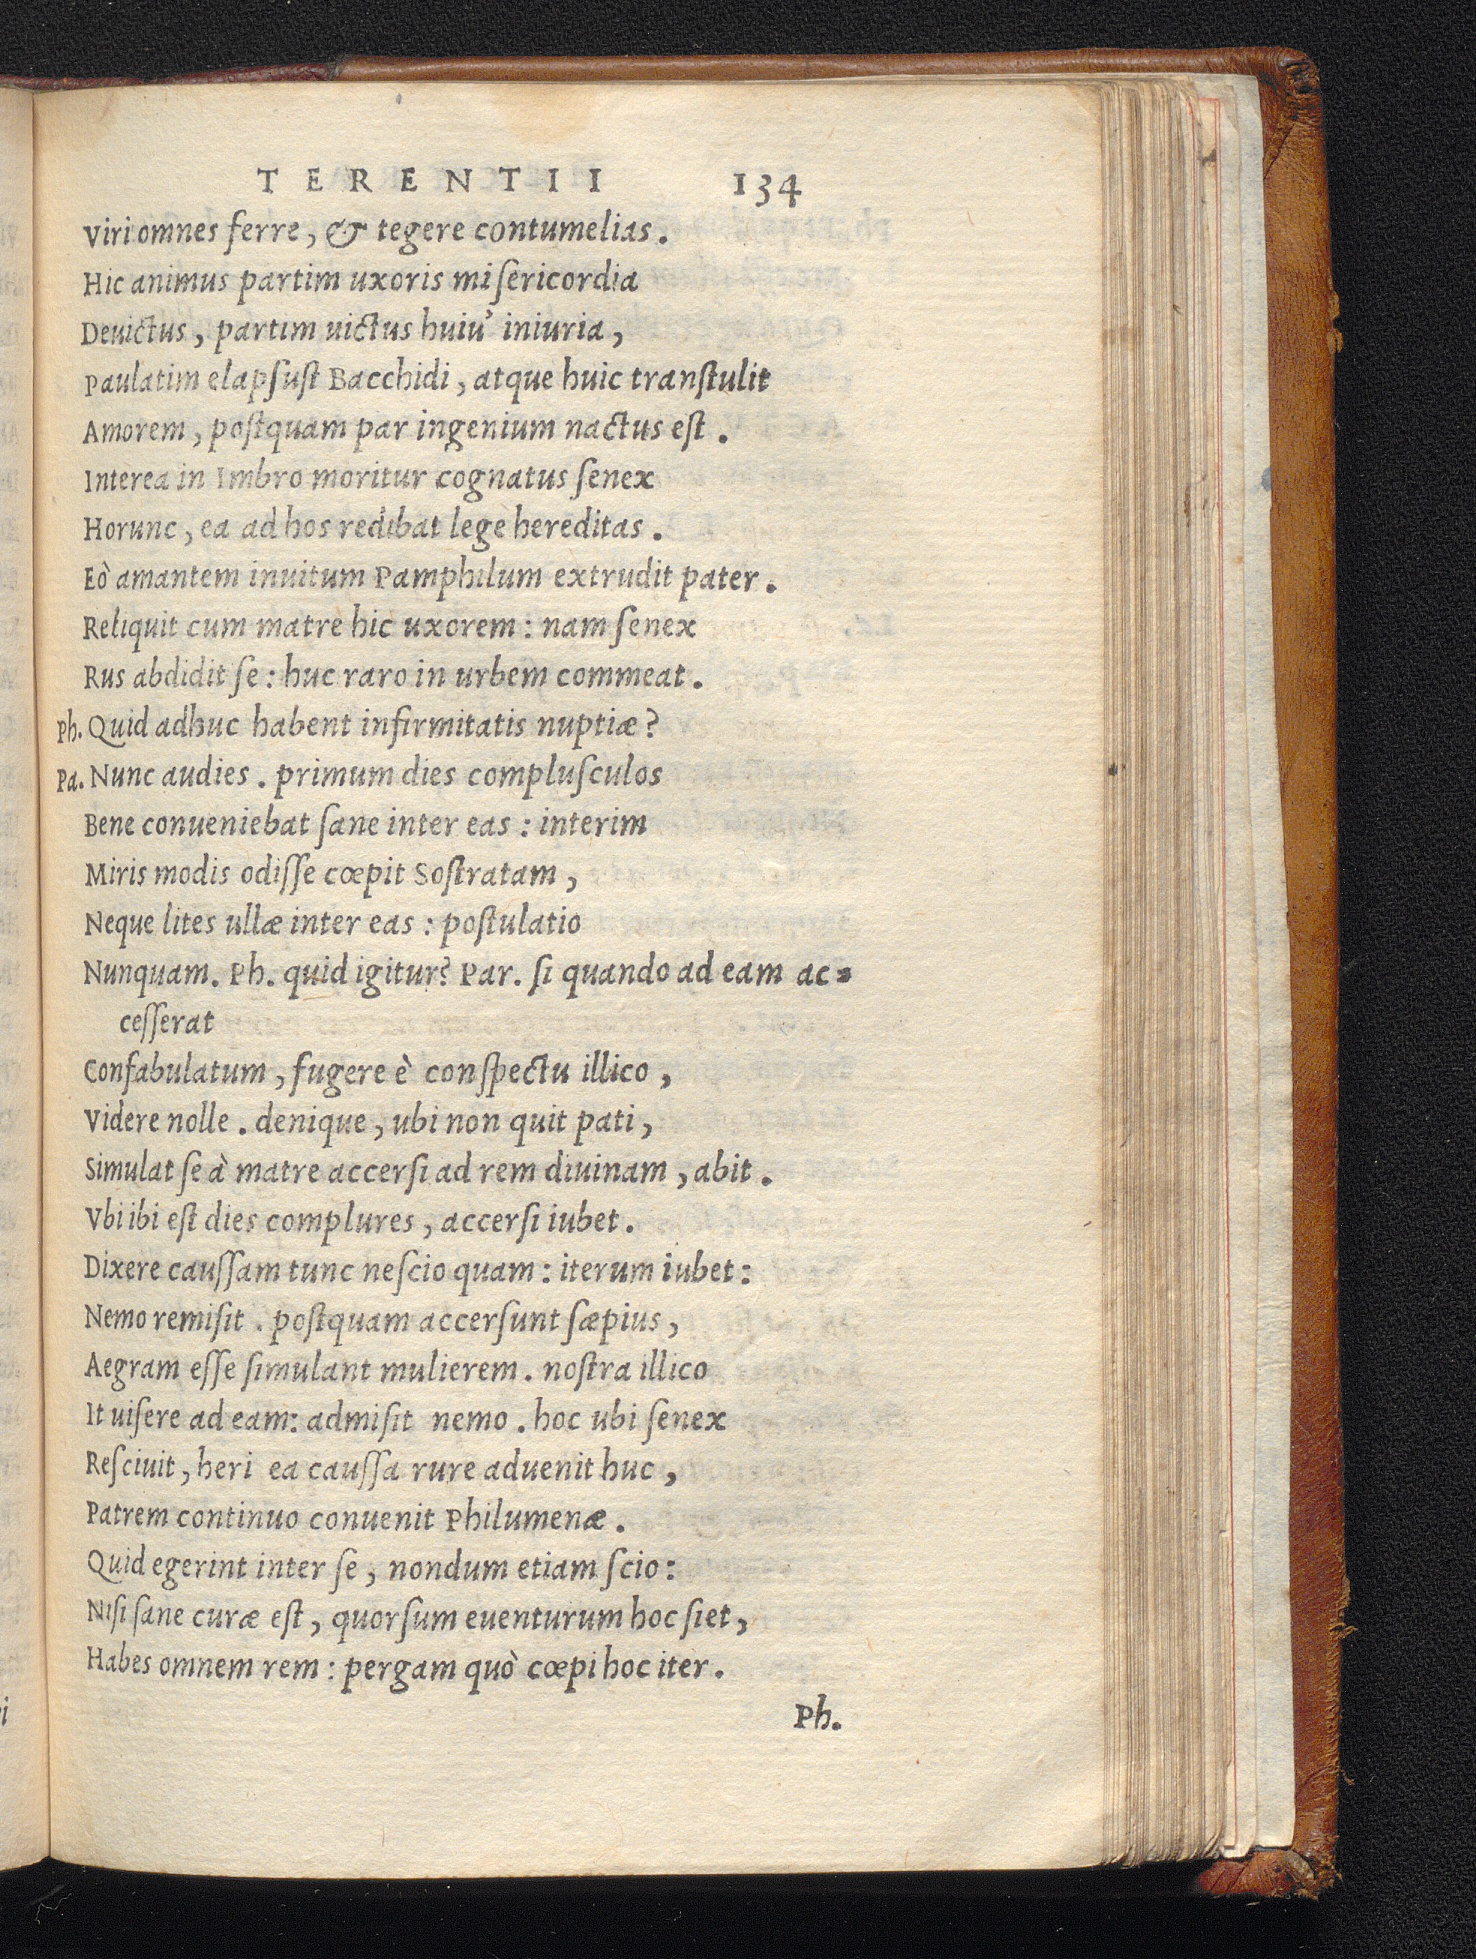 TERENTII 134
Viri omnes ferre, & tegere contumelias.
Hic animus partim uxoris miſericordia
Deuictus, partim uictus huiu' iniuria,
Paulatim elapſuſt Bacchidi, atque huic tranſtulit
Amorem, poſtquam par ingenium nactus eſt.
Interea in Imbro moritur cognatus ſenex
Horunc, ea ad hos redibat lege hereditas.
Eò amantem inuitum Pamphilum extrudit pater.
Reliquit cum matre hic uxorem: nam ſenex
Rus abdidit ſe: huc raro in urbem commeat.
Ph. Quid adhuc habent infirmitatis nuptiæ?
Pa. Nunc audies. primum dies compluſculos
Bene conueniebat ſane inter eas: interim
Miris modis odiſſe cœpit Soſtratam,
Neque lites ullæ inter eas: poſtulatio
Nunquam. Ph. quid igitur? Par. ſi quando ad eam ac=
ceſſerat
Confabulatum, fugere è conſpectu illico,
Videre nolle. denique, ubi non quit pati,
Simulat ſe à matre accerſi ad rem diuinam, abit.
Vbi ibi eſt dies complures, accerſi iubet.
Dixere cauſſam tunc neſcio quam: iterum iubet:
Nemo remiſit. poſtquam accerſunt ſæpius,
Aegram eſſe ſimulant mulierem. noſtra illico
It uiſere ad eam: admiſit nemo. hoc ubi ſenex
Reſciuit, heri ea cauſſa rure aduenit huc,
Patrem continuo conuenit Philumenæ.
Quid egerint inter ſe, nondum etiam ſcio:
Niſi ſane curæ eſt, quorſum euenturum hoc ſiet,
Habes omnem rem: pergam quò cœpi hoc iter.
Ph.